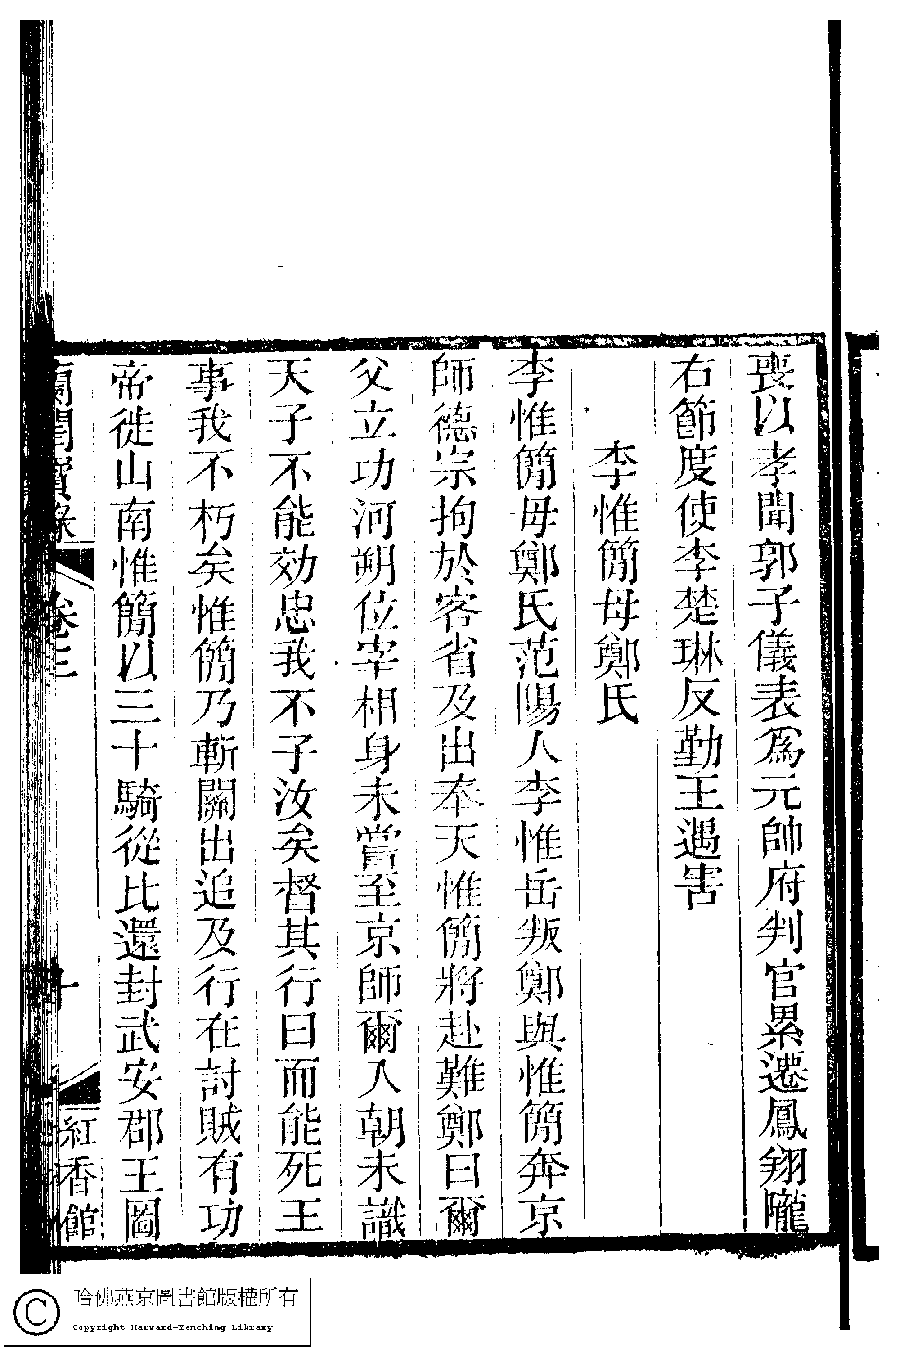 喪以孝聞郭子儀表為元帥府判官累遷鳳翔隴
右節度使李楚琳反勤王遇害
李惟簡母鄭氏
李惟簡母鄭氏范陽人李惟岳叛鄭與惟簡奔京
師德宗拘於客省及出奉天惟簡將赴難鄭曰爾
父立功河朔位宰相身未嘗至京師爾入朝未識
天子不能効忠我不子汝矣督其行曰而能死王
事我不朽矣惟簡乃斬關出追及行在討賊有功
帝徙山南惟簡以三十騎從比還封武安郡王圖
蘭閨寶錄 卷三 十 紅香館
哈佛燕京圖書館版權所有
Copyright Harvard-Yenching Library